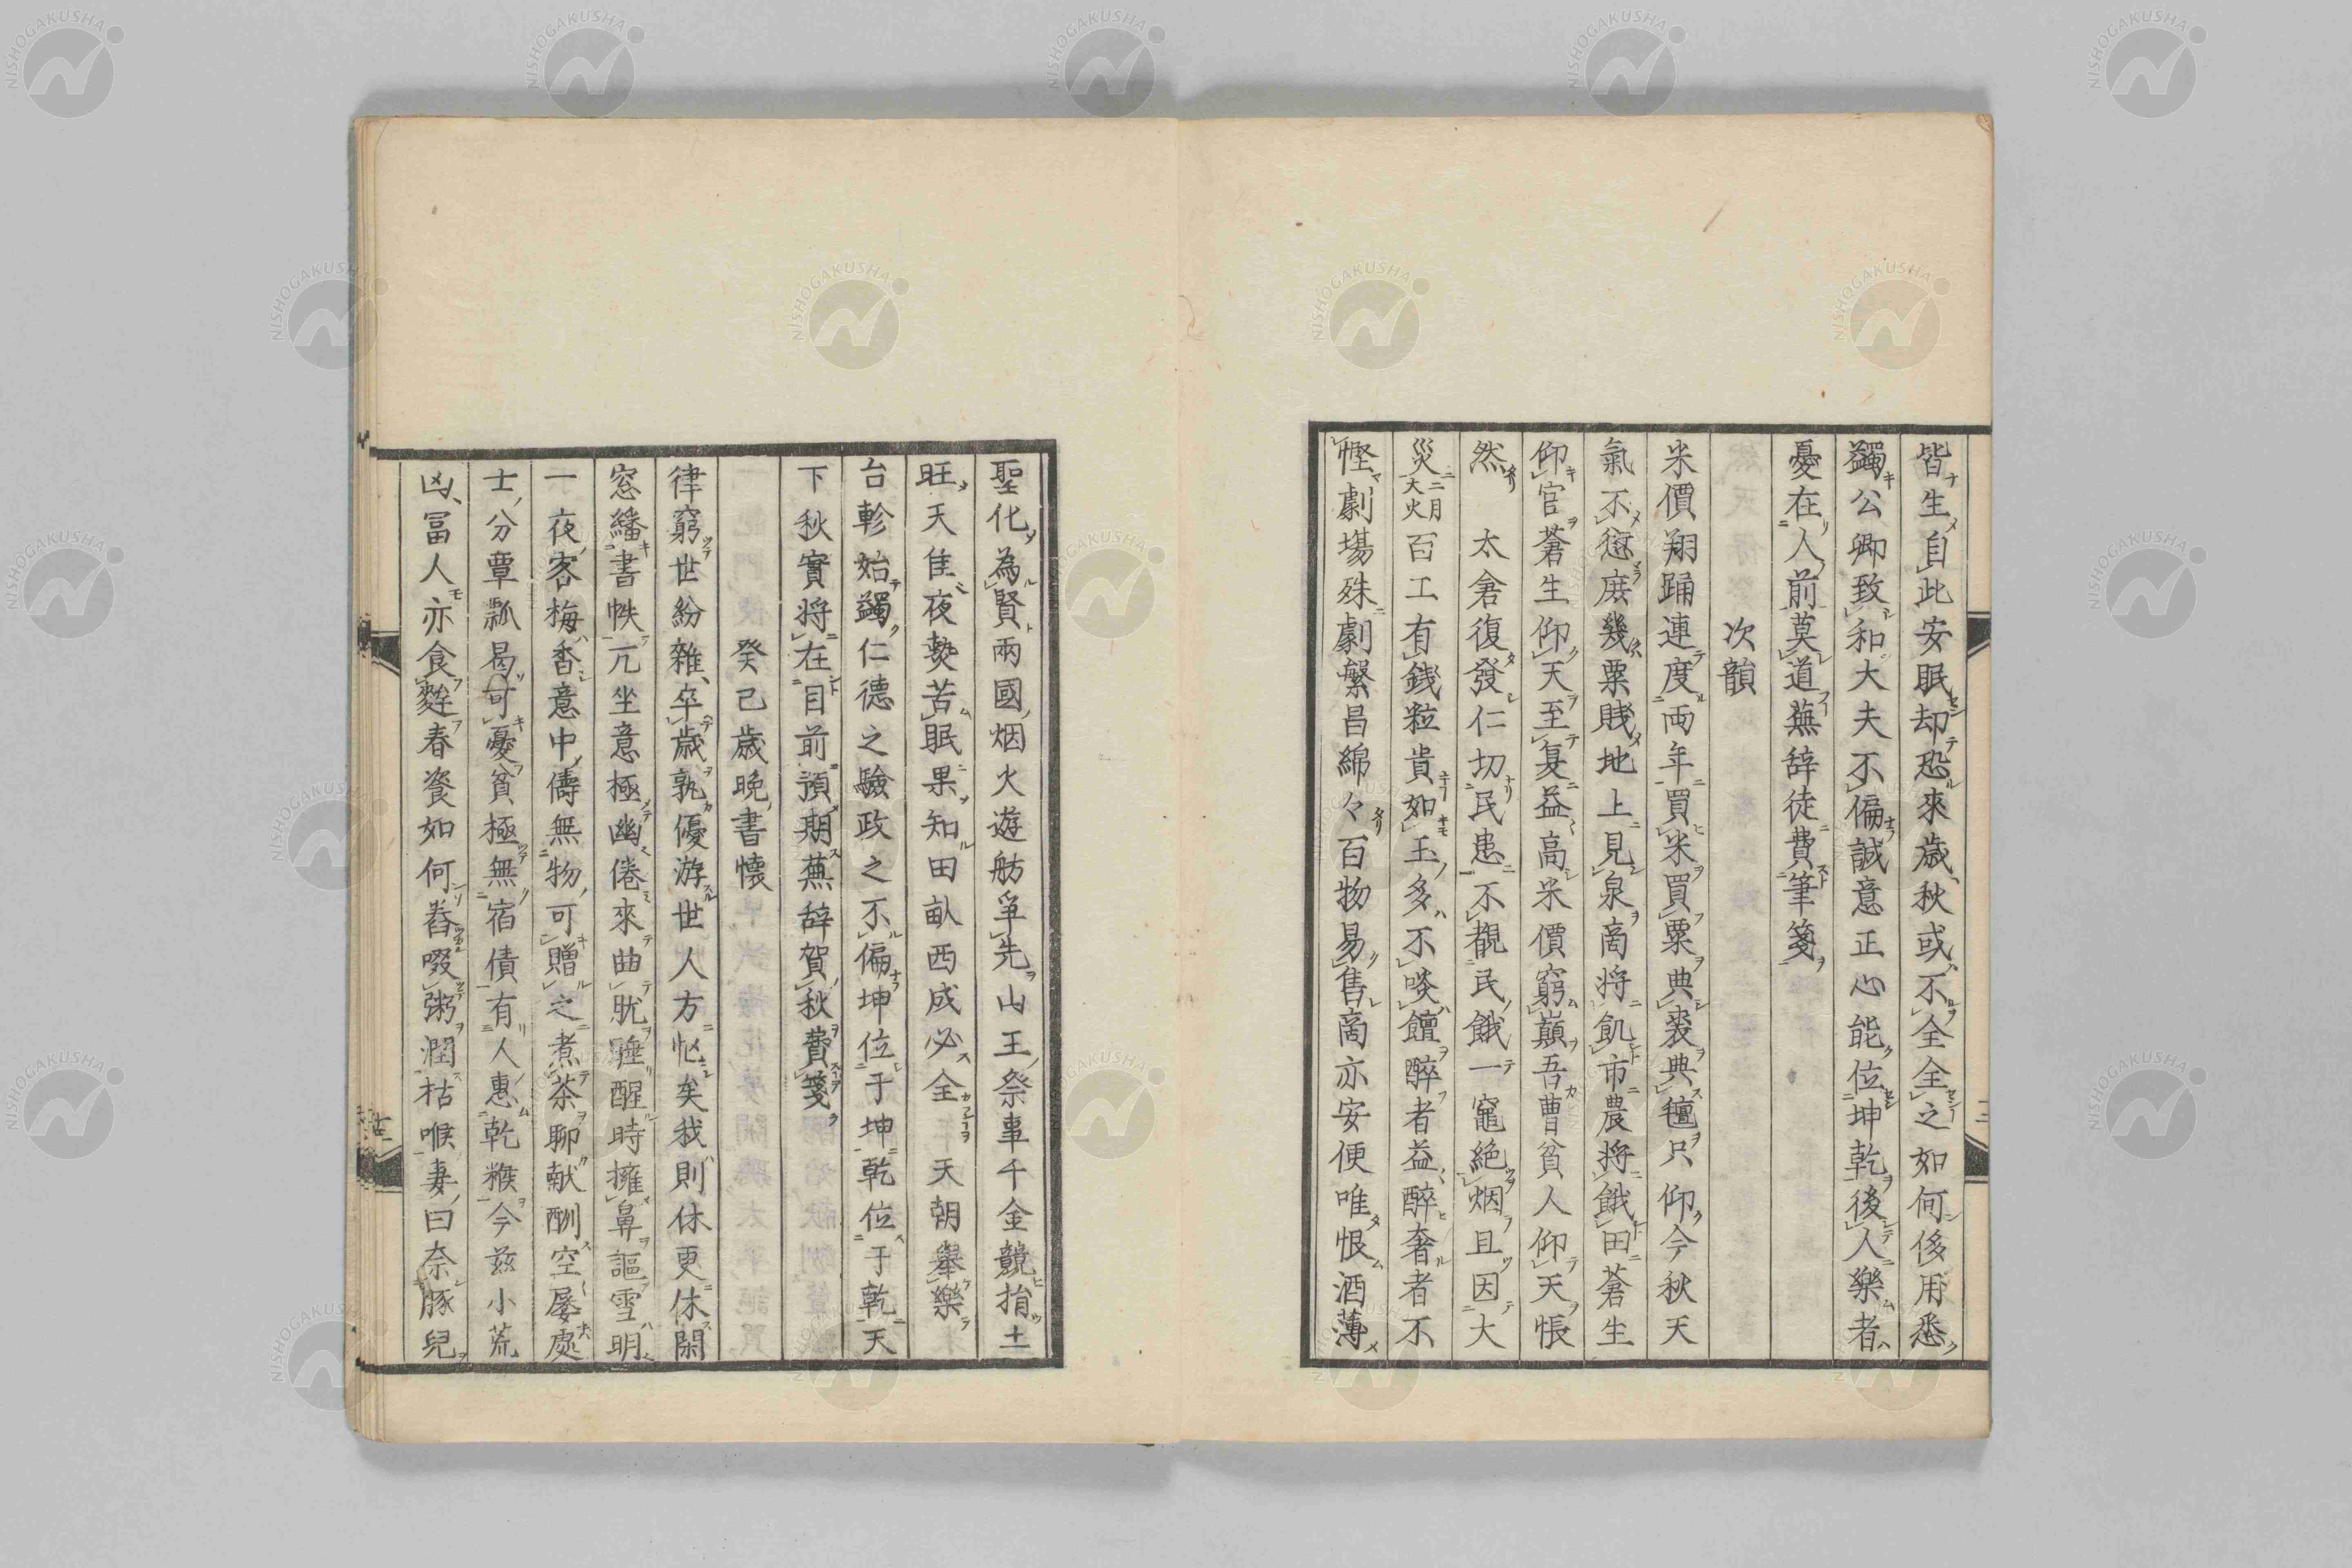 皆生自此安眠却恐來歲秋或不全全之如何侈用悉
蠲公卿致和大夫不偏誠意正心能位坤乾後人樂者
憂在人前莫道蕪辞徒費筆箋
次韻
米價翔踊連度両年買米買粟典裘典氊只仰今秋天
氣不愆庶幾粟賤地上見泉啇將飢市農將餓田蒼生
仰官蒼生仰天至夏益高米價窮巔吾曹貧人仰天悵
然 太倉復發仁切民患不覩民餓一竈絶烟且因大
災二月大火百工有銭粒貴如玉多不啖饘醉者益醉奢者不
慳劇塲殊劇繁昌綿々百物易售啇亦安便唯恨酒薄
聖化為賢兩國烟火遊舫爭先山王祭事千金競捐土
旺天佳夜熱苦眠果知田畝西成必全天朝舉樂
台軫始蠲仁德之驗政之不偏坤位于坤乾位于乾天
下秋實將在目前預期蕪辞賀秋費箋
癸已歲晩書懷
律窮世紛雜卒歲孰優游世人方忙矣我則休更休閑
窓繙書帙兀坐意極幽倦來曲肱睡醒時擁鼻謳雪明
一夜客梅香意中儔無物可贈之煮茶聊献酬空屡處
士分簞瓢曷可憂貧極無宿債有人惠乾糇今茲小荒
凶冨人亦食麰春資如何啜粥潤枯喉妻曰奈豚兒